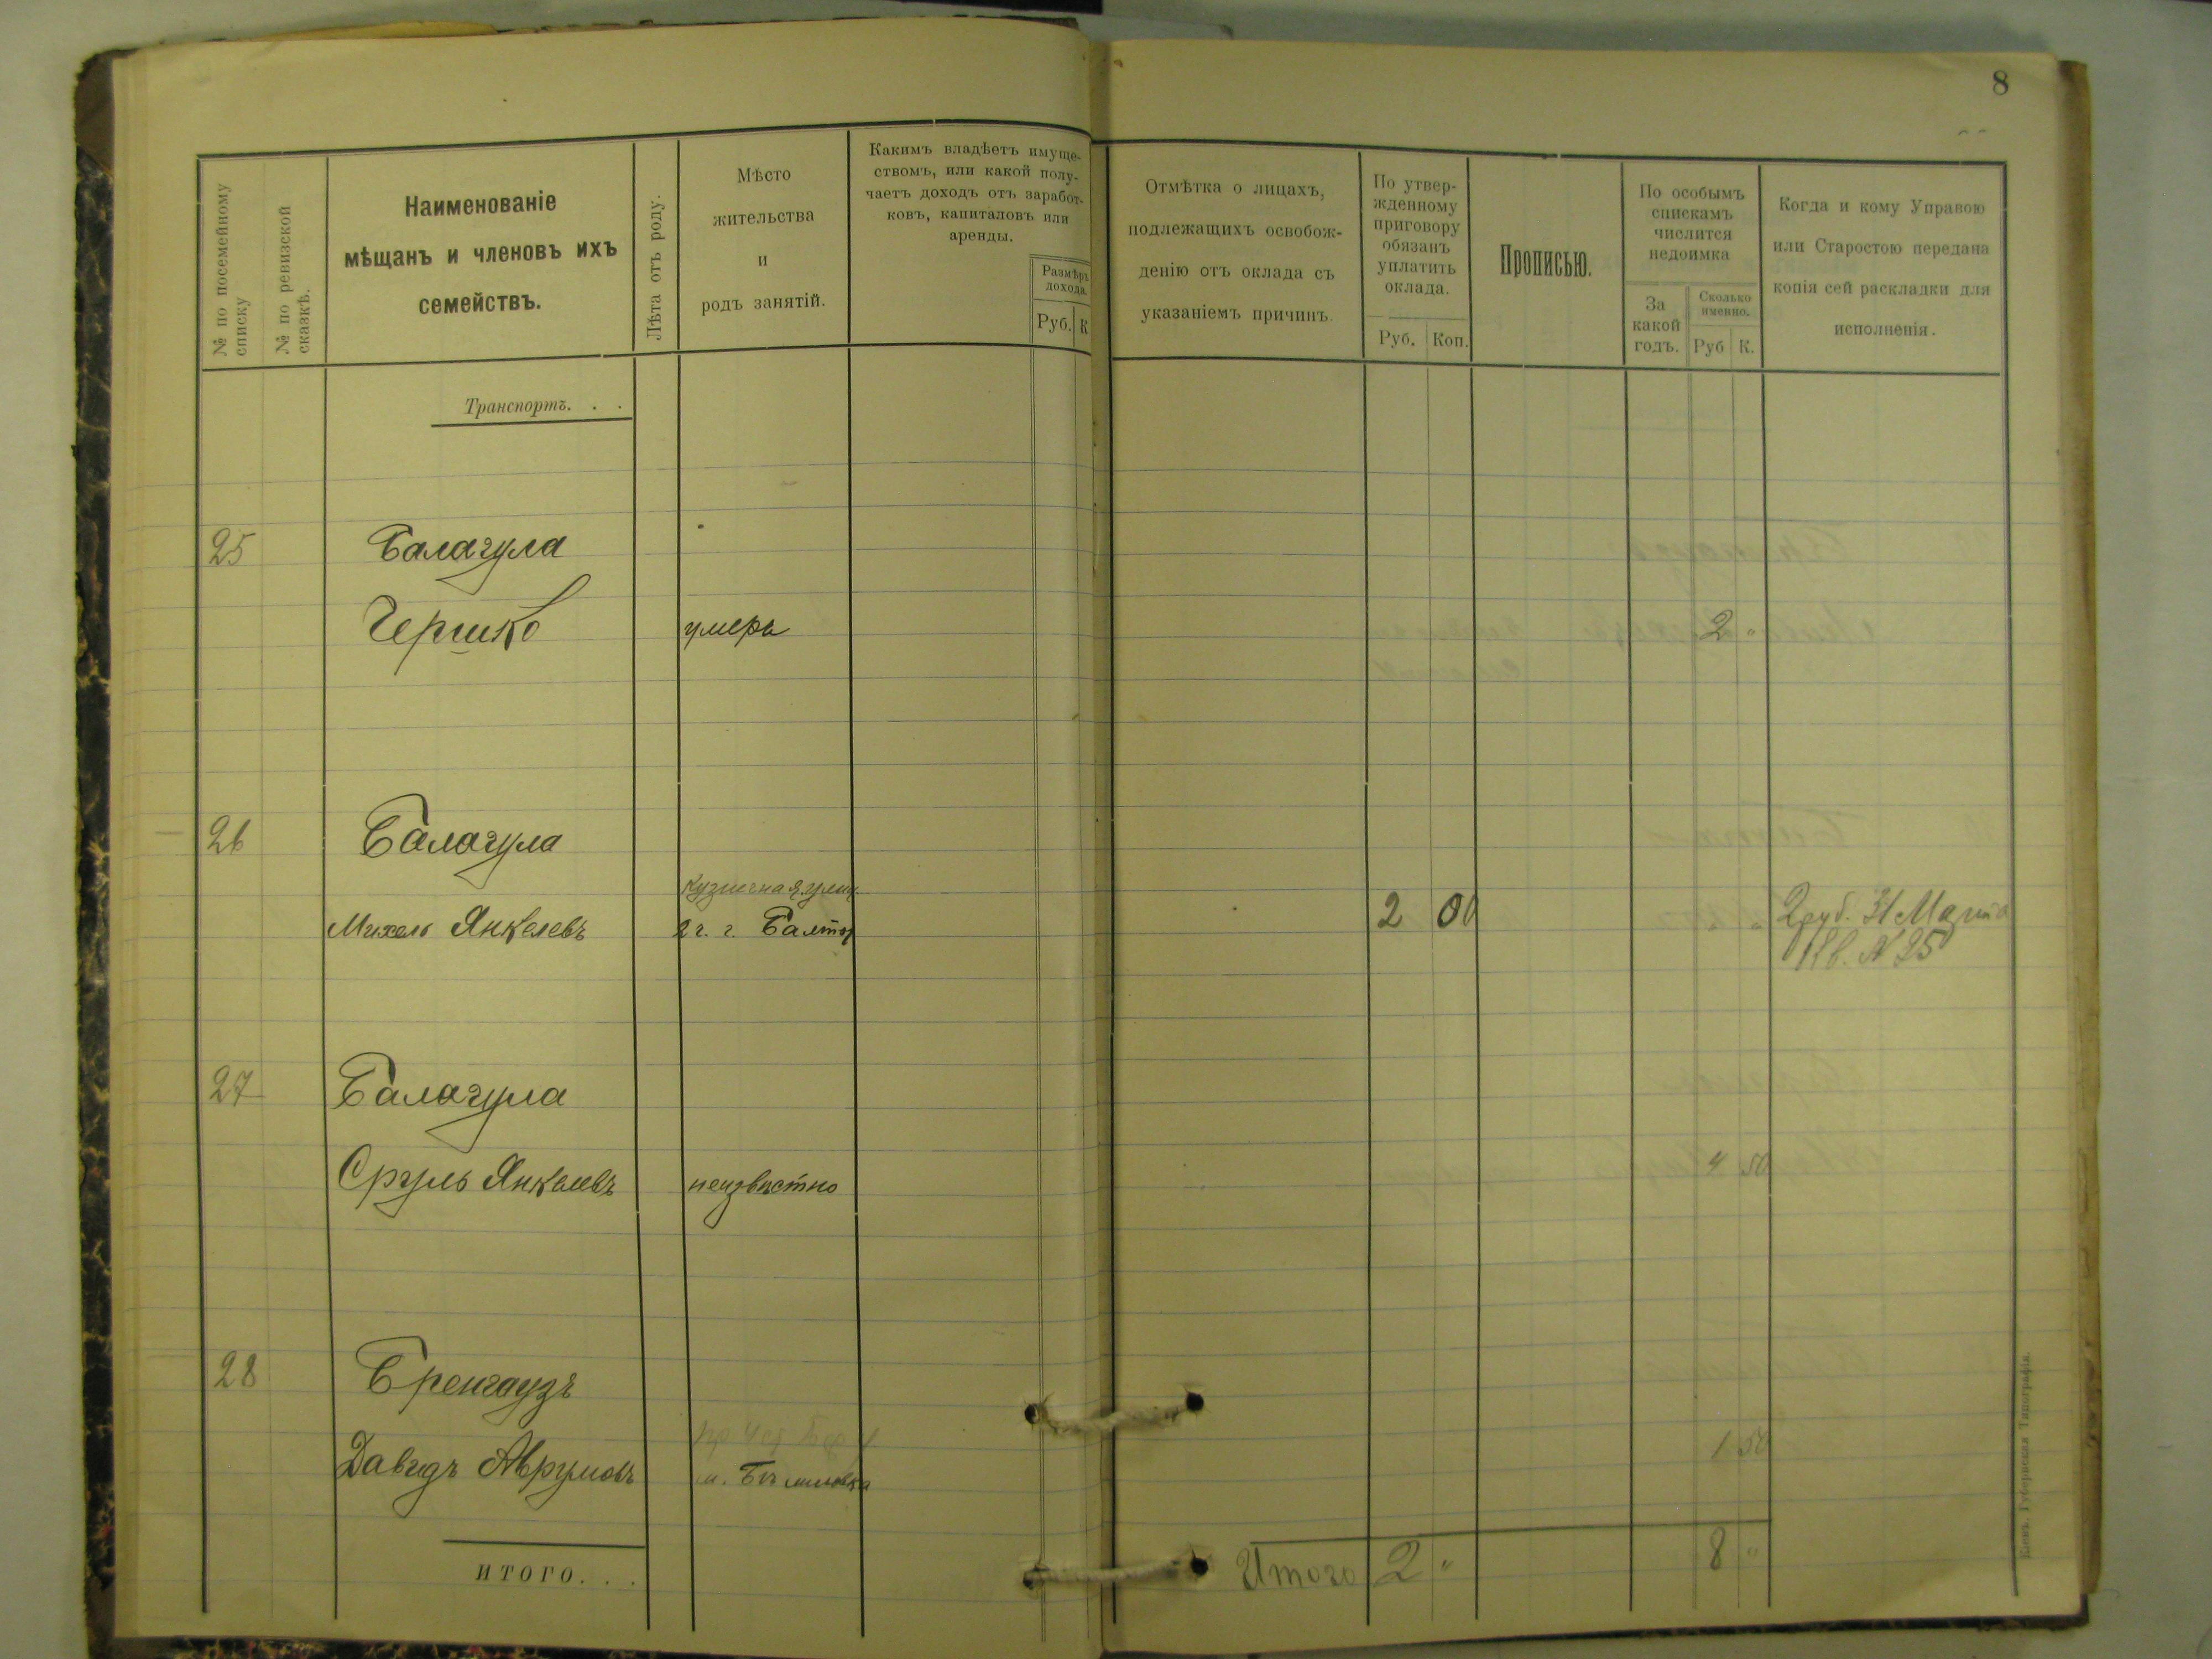 8
№ по посемейному
списку
№ по ревизской
сказкѣ.
Наименованіе
мѣщанъ и членовъ ихъ
семействъ.
Лѣта отъ роду.
Мѣсто
жительства
и
родъ занятій.
Какимъ владѣетъ имуще-
ствомъ, или какой полу-
чаетъ доходъ отъ заработ-
ковъ, капиталовъ или
аренды.
Размѣръ
дохода.
Руб. К
Отмѣтка о лицахъ,
подлежащихъ освобож-
денію отъ оклада съ
указаніемъ причинъ
По утвер-
жденному
приговору
обязанъ
уплатить
оклада.
Руб. Коп.
Прописью.
По особымъ
спискамъ
числится
недоимка
За
какой
годъ.
Сколько
именно.
Руб К.
Когда и кому Управою
или Старостою передана
копія сей раскладки для
исполненія.
Транспортъ. . .
25 Балагула
Гершко умеръ 2 "
26 Балагула
Кузнечная улиц.
Михель Янкелевъ 2 г. г. Балтѣ 2 00 2 руб. 31 Марта
Кв. № 25
27 Балагула
Сруль Янкелевъ неизвѣстно 4 50
28 Бренгаузъ
Давидъ Аврумовъ м. 1 50
ИТОГО. . . Итого 2 " 8 "
Кіевъ. Губернская Типографія.